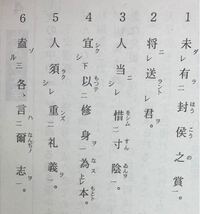 1 未ダ有ラ二封侯之賞一。
2 将ニ送ラント君ヲ。
3 人当ニ惜シム寸陰ヲ。
4 宜シク下以テ修身ヲ為ス本ト。
5 人須ラク重ンズ礼義ヲ。
6 盍ゾ三各、言ハ二爾ノ志ヲ一。